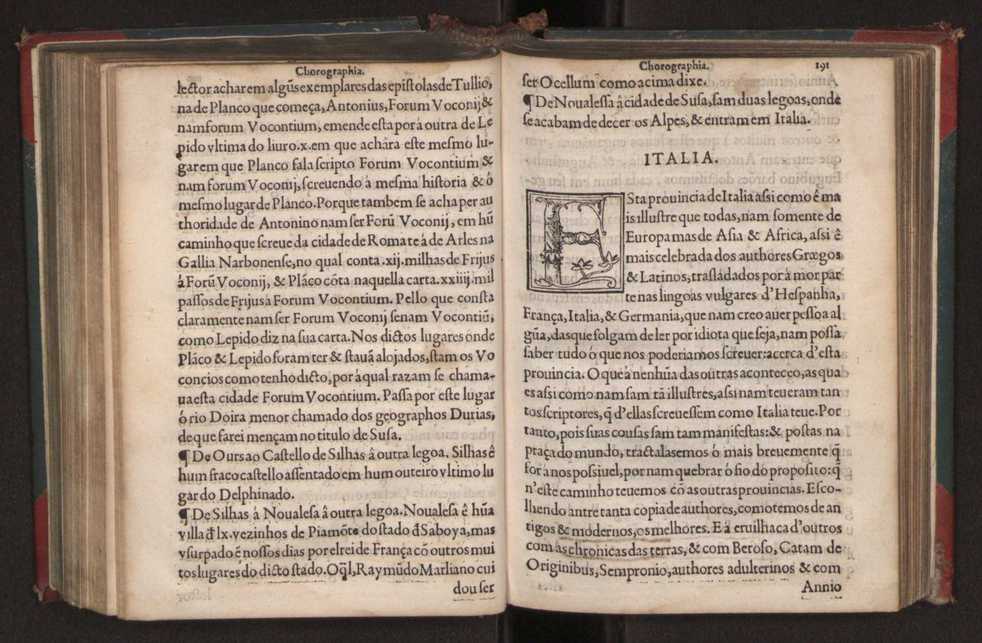 Chorographia.
lector acharem algũs exemplares das epistolas de Tullio,
na de Planco que começa, Antonius, Forum Voconij &
nam forum Vocontium, emende esta por à outra de Le
pido vltima do liuro.x.em que achàra este mesmo lu-
gar em que Planco fala scripto Forum Vocontium &
nam forum Voconij, screuendo à mesma historia & ò
mesmo lugar de Planco. Porque tambem se acha per au
thoridade de Antonino nam ser Forũ Voconij, em hũ
caminho que screue da cidade de Roma te à de Arles na
Gallia Narbonense, no qual conta .xij. milhas de Frijus
à Forũ Voconij, & Plãco cõta naquella carta.xxiiij.mil
passos de Frijus à Forum Vocontium. Pello que consta
claramente nam ser Forum Voconij senam Vocontiũ,
como Lepido diz na sua carta. Nos dictos lugares onde
Plãco & Lepido foram ter & stauã alojados, stam os Vo
concios como tenho dicto, por à qual razam se chama-
ua esta cidade Forum Vocontium. Passa por este lugar
ò rio Doira menor chamado dos geographos Durias,
de que farei mençam no titulo de Susa.
¶ De Ours ao Castello de Silhas â outra legoa. Silhas ê
hum fraco castello assentado em hum outeiro vltimo lu
gar do Delphinado.
¶ De Silhas à Noualesa â outra legoa. Noualesa ê hũa
villa đ lx. vezinhos de Piamõte do stado đ Saboya, mas
vsurpado ẽ nossos dias por elrei de França cõ outros mui
tos lugares do dicto stado. O q̃l, Raymũdo Marliano cui
dou ser
Chorographia. 191
ser Ocellum como acima dixe.
¶ De Noualessa â cidade de Susa, sam duas legoas, onde
se acabam de decer os Alpes, & entram em Italia.
ITALIA.
ESta prouincia de Italia assi como ê ma
is illustre que todas, nam somente de
Europa mas de Asia & Africa, assi ê
mais celebrada dos authores Græcgos
& Latinos, trasladados por à mor par
te nas lingoas vulgares d'Hespanha,
França, Italia, & Germania, que nam creo auer pessoa al
gũa, das que folgam de ler por idiota que seja, nam possa
saber tudo ò que nos poderiamos screuer: acerca d'esta
prouincia. O que à nenhũa das outras aconteceo, as qua
es assi como nam sam tã illustres, assi nam teueram tan
tos scriptores, q̃ d'ellas screuessem como Italia teue. Por
tanto, pois suas cousas sam tam manifestas: & postas na
praça do mundo, tractalasemos ò mais breuemente q̃
for à nos possiuel, por nam quebrar ò fio do proposito: q̃
n'este caminho teuemos cõ as outras prouincias. Esco-
lhendo antre tanta copia de authores, como temos de an
tigos & modernos, os melhores. E à eruilhaca d'outros
com as chronicas das terras, & com Beroso, Catam de
Originibus, Sempronio, authores adulterinos & com
Annio